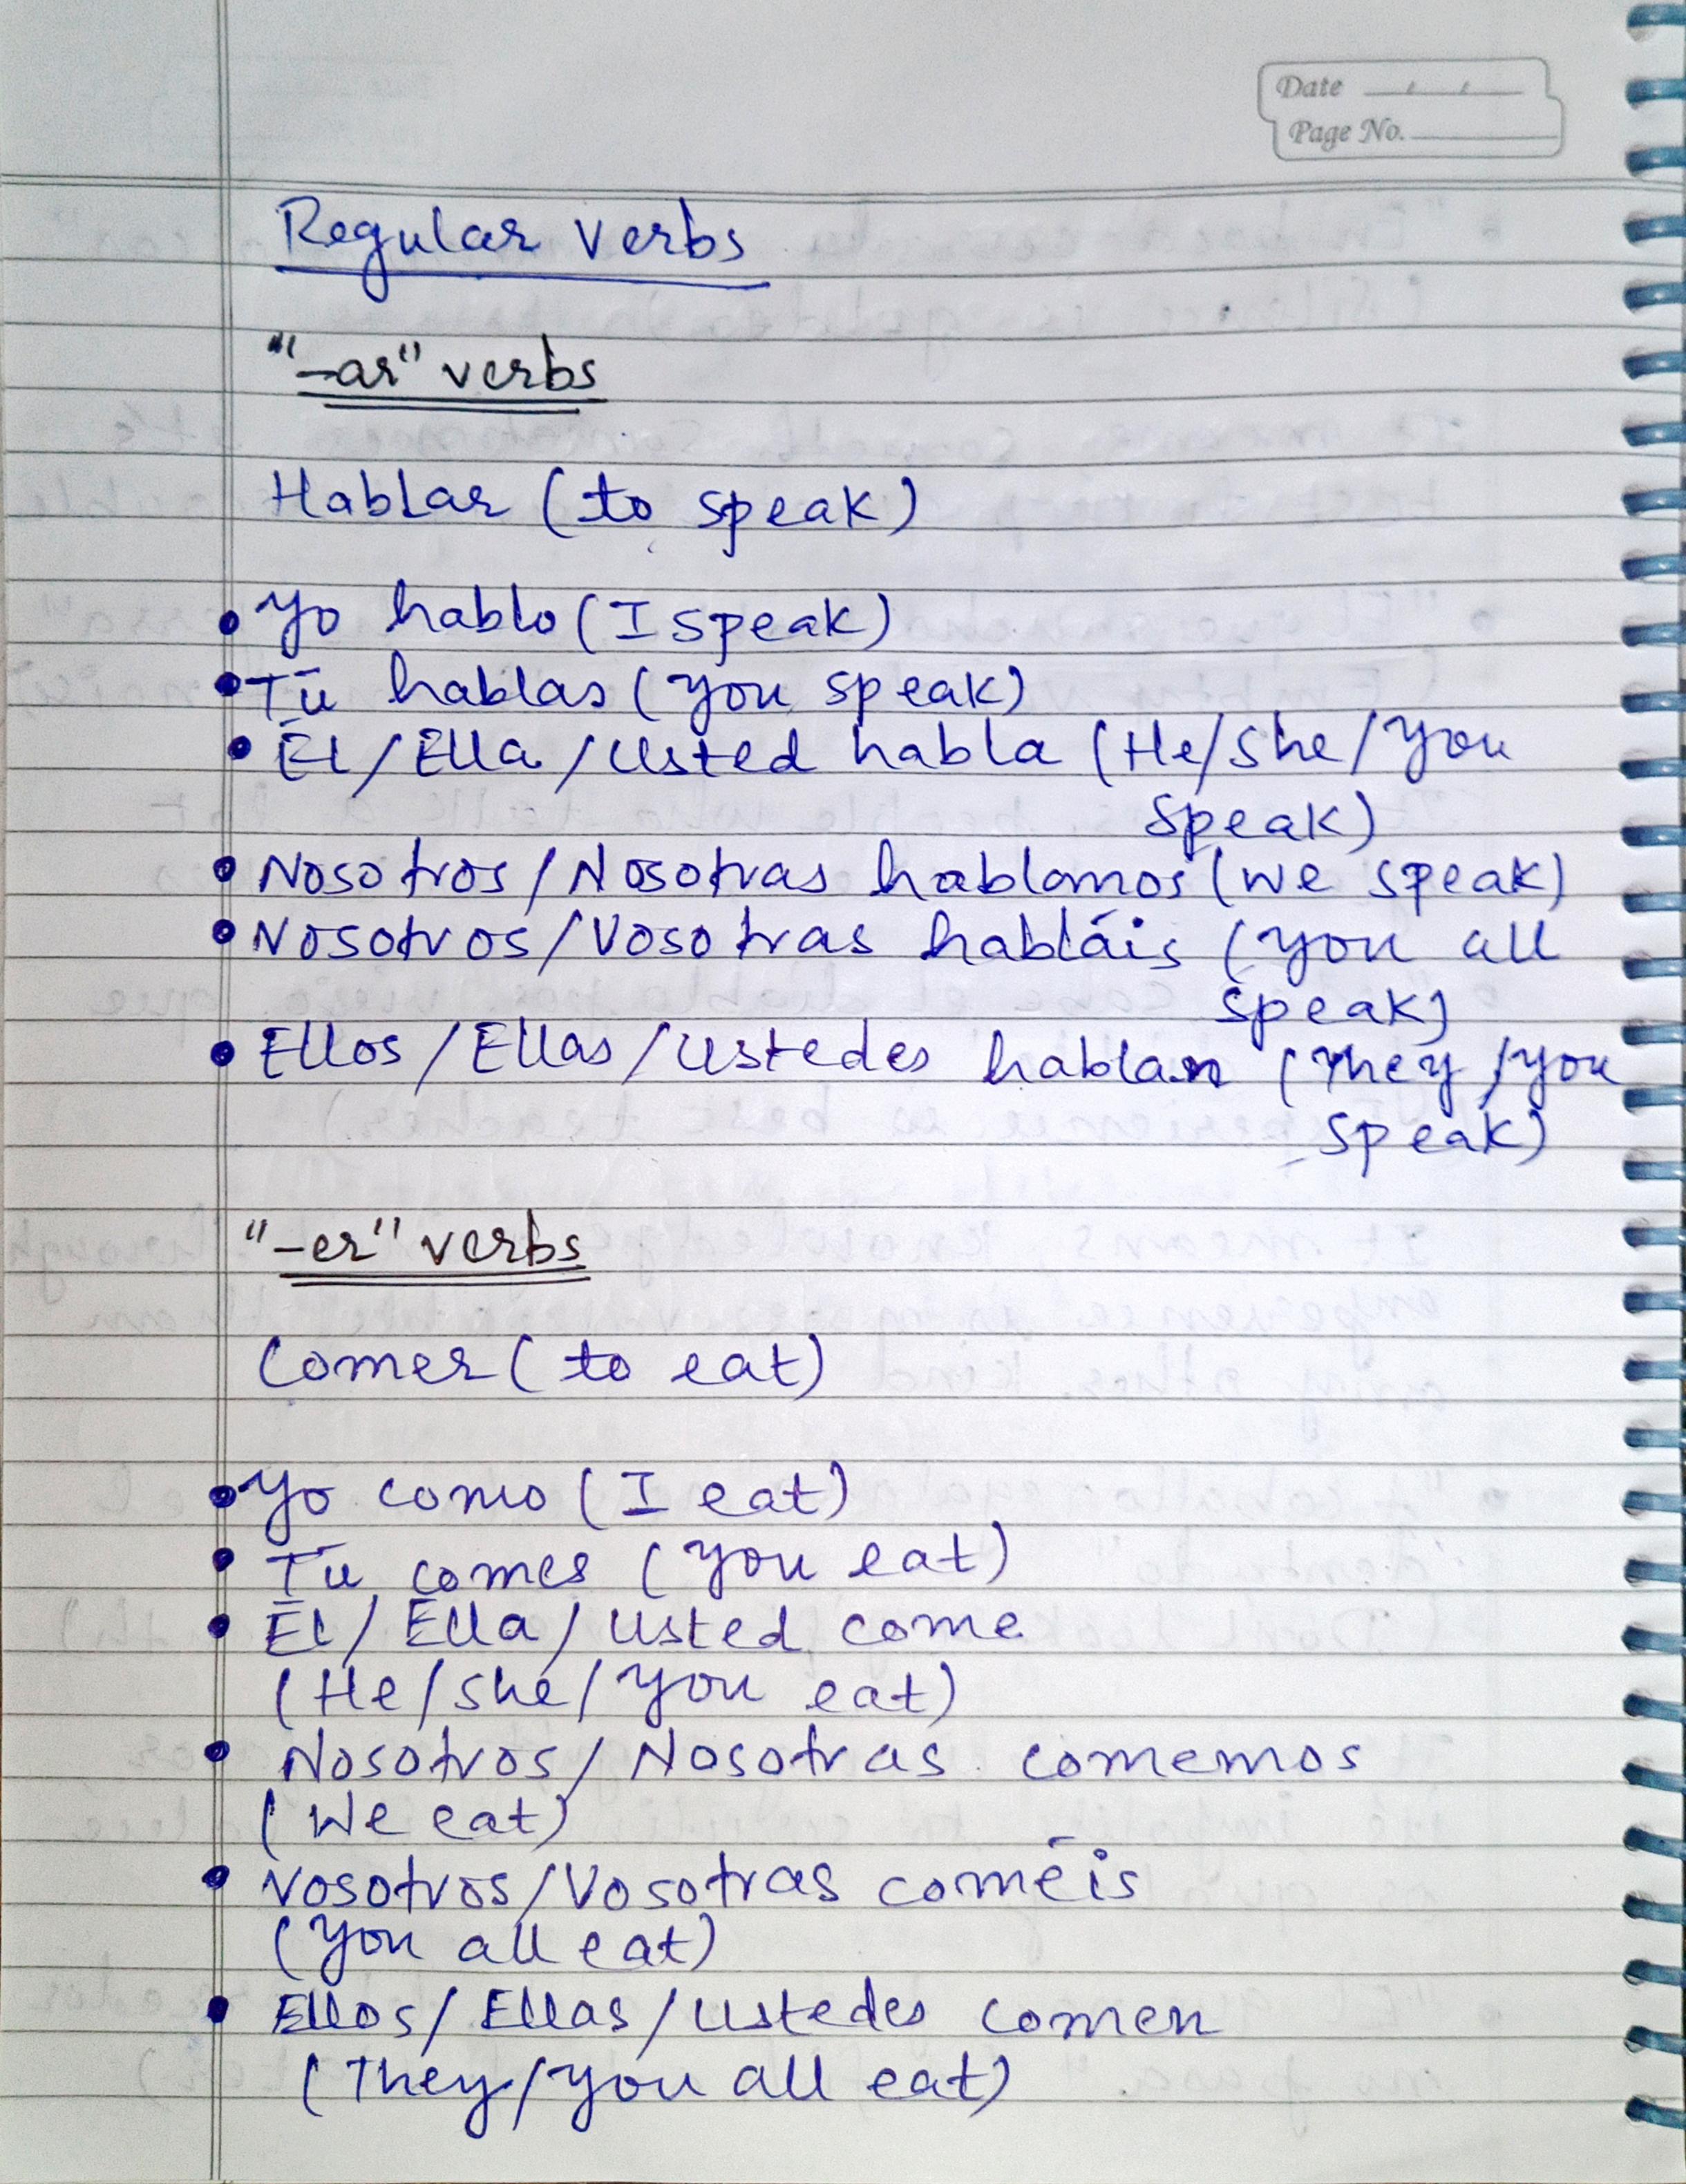 Date / /
Page No.
Regular Verbs
"-ar" verbs
Hablar (to speak)
• Yo hablo (I speak)
• Tū hablas (you speak)
• Él/Ella/Usted habla (He/She/you
speak)
• Nosotros/Nosotras hablamos (we speak)
• Nosotros/Vosotras habláis (you all
speak)
• Ellos/Ellas/Ustedes hablan (They/you
speak)
"-er" verbs
Comer (to eat)
• Yo como (I eat)
• Tū comes (you eat)
• Ēl/Ēlla/Usted come
(He/she/you eat)
• Nosotros/Nosotras comemos
(We eat)
• Vosotros/Vosotras comēis
(you all eat)
• Ellos/Ellas/Ustedes comen
(They/you all eat)